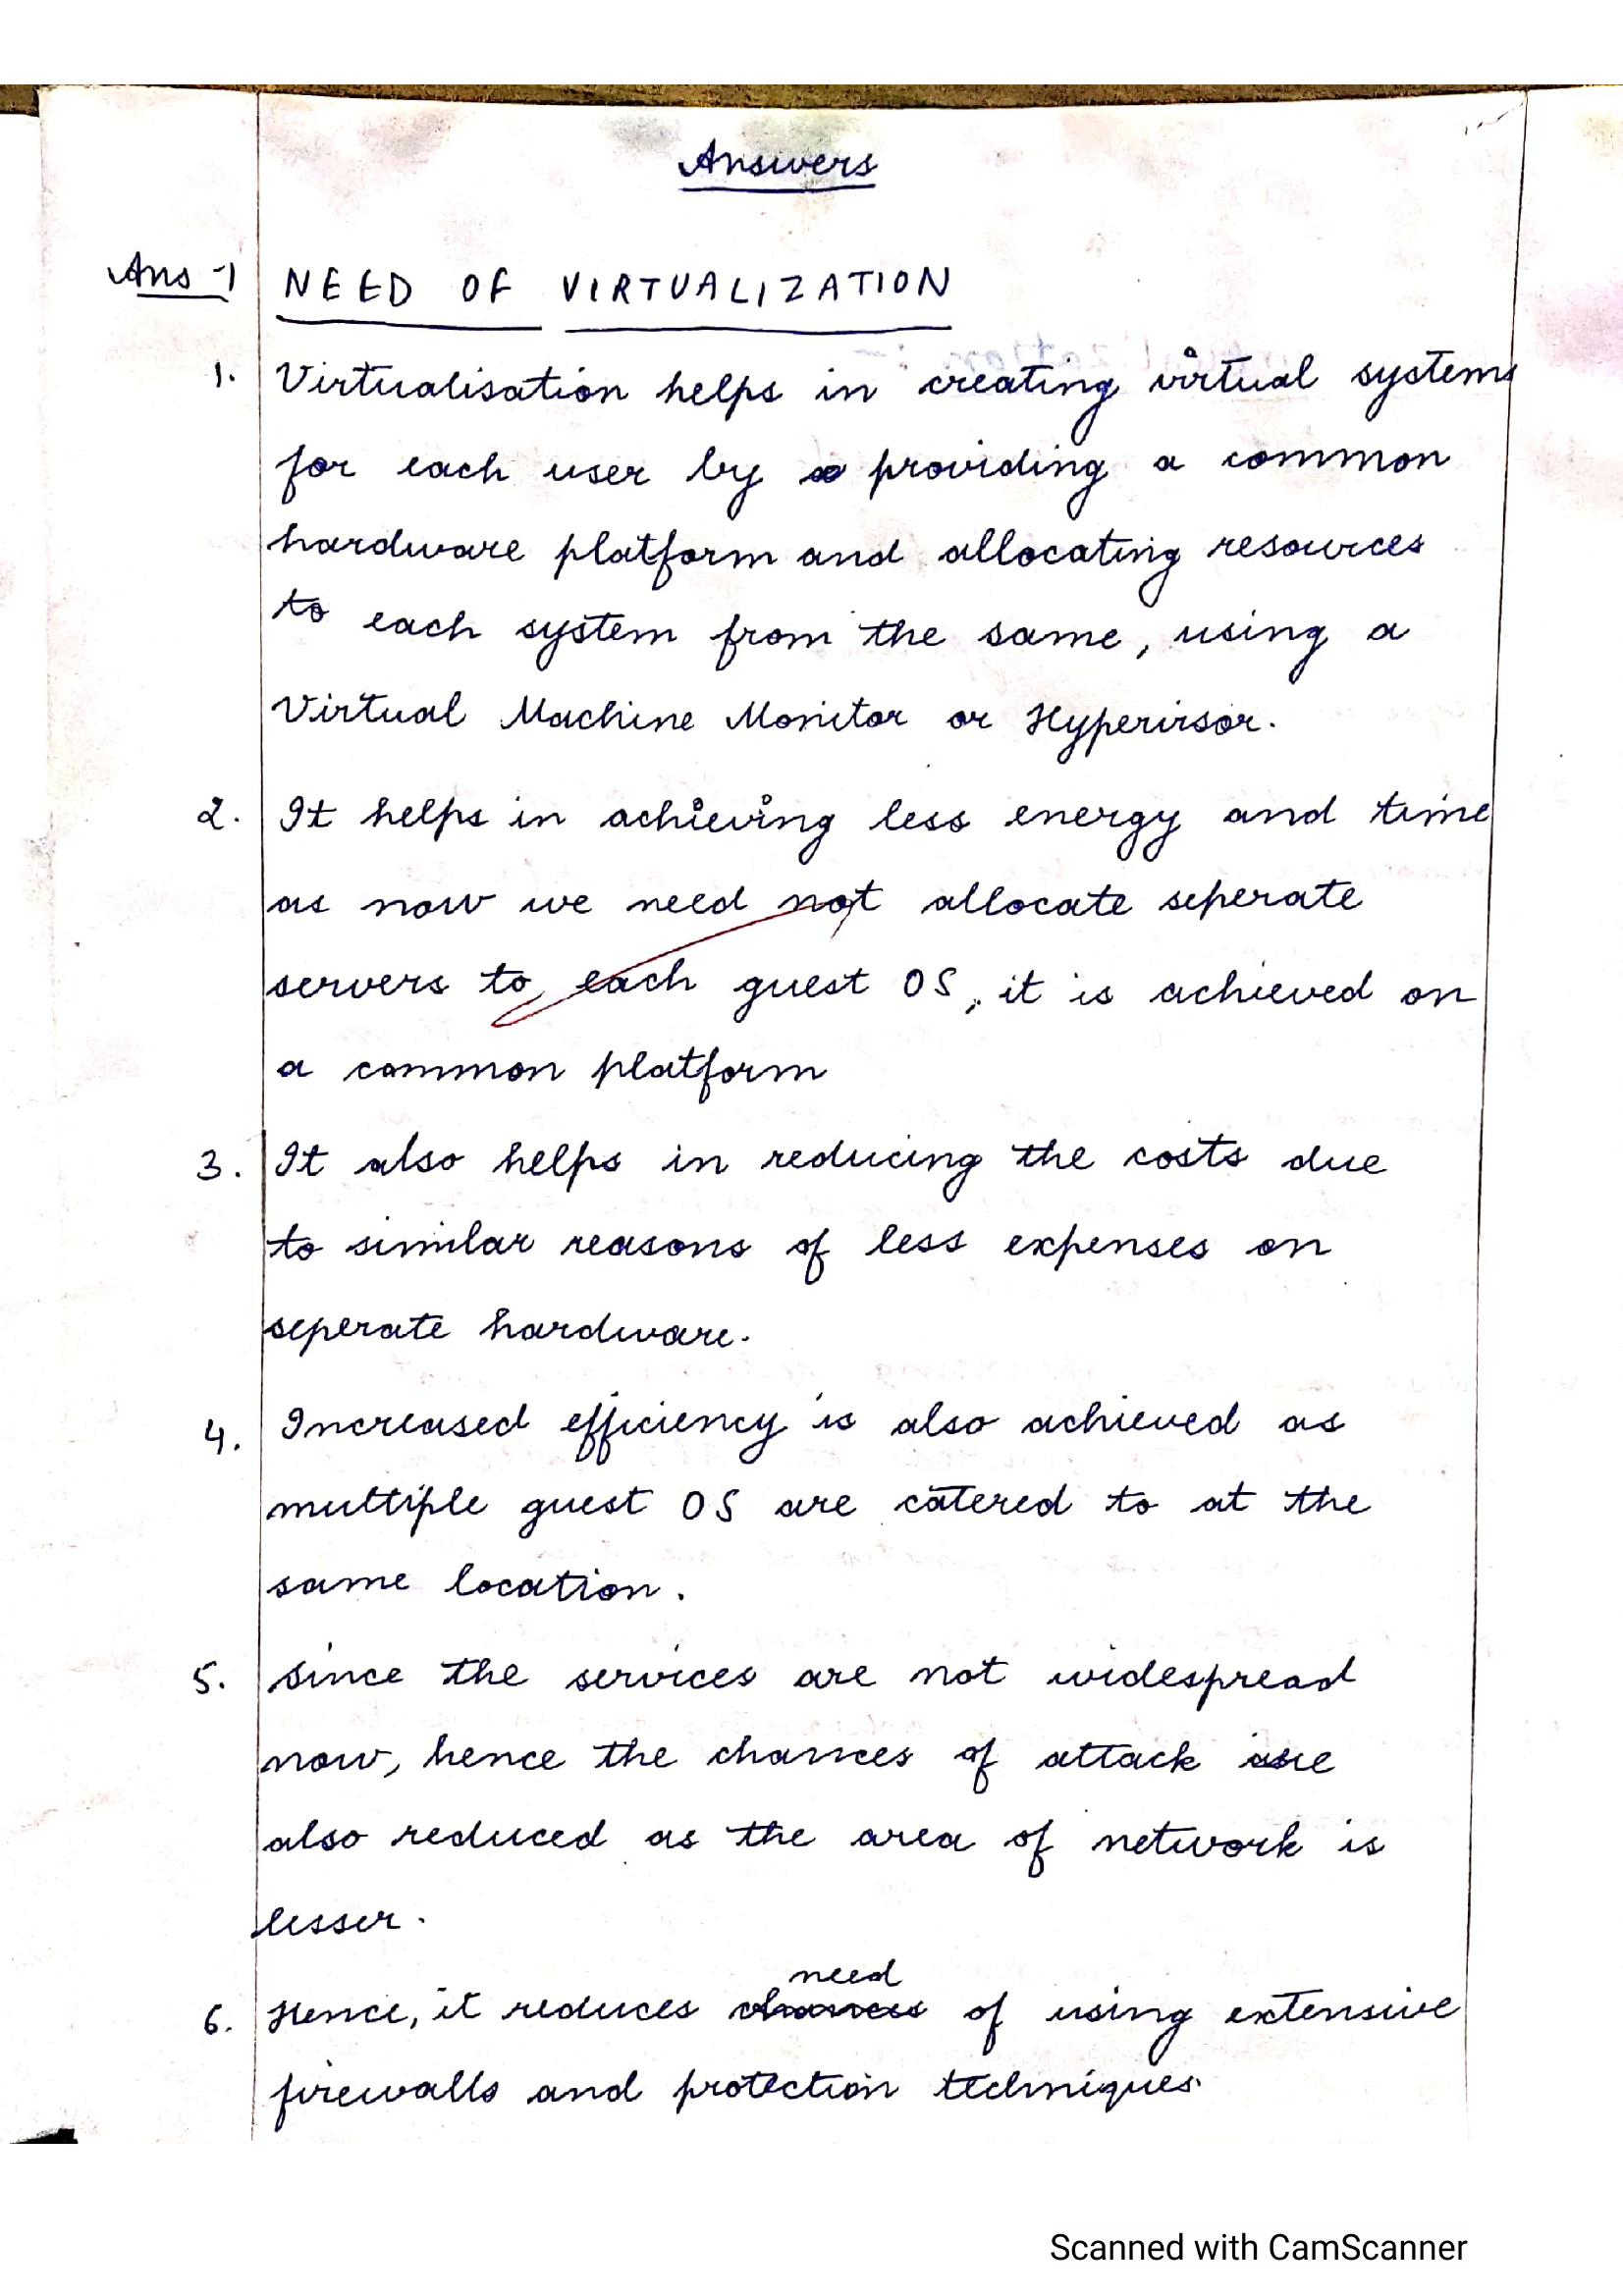 Answers
Ans-1 NEED OF VIRTUALIZATION
1. Virtualisation helps in creating virtual systems
for each user by providing a common
hardware platform and allocating resources
to each system from the same, using a
Virtual Machine Monitor or Hypervisor.
2. It helps in achieving less energy and time
as now we need not allocate seperate
servers to each guest OS, it is achieved on
a common platform
3. It also helps in reducing the costs due
to similar reasons of less expenses on
seperate hardware.
4. Increased efficiency is also achieved as
multiple guest OS are catered to at the
same location.
5. Since the services are not widespread
now, hence the chances of attack are
also reduced as the area of network is
lesser.
need
6. Hence, it reduces chances of using extensive
firewalls and protection techniques.
Scanned with CamScanner